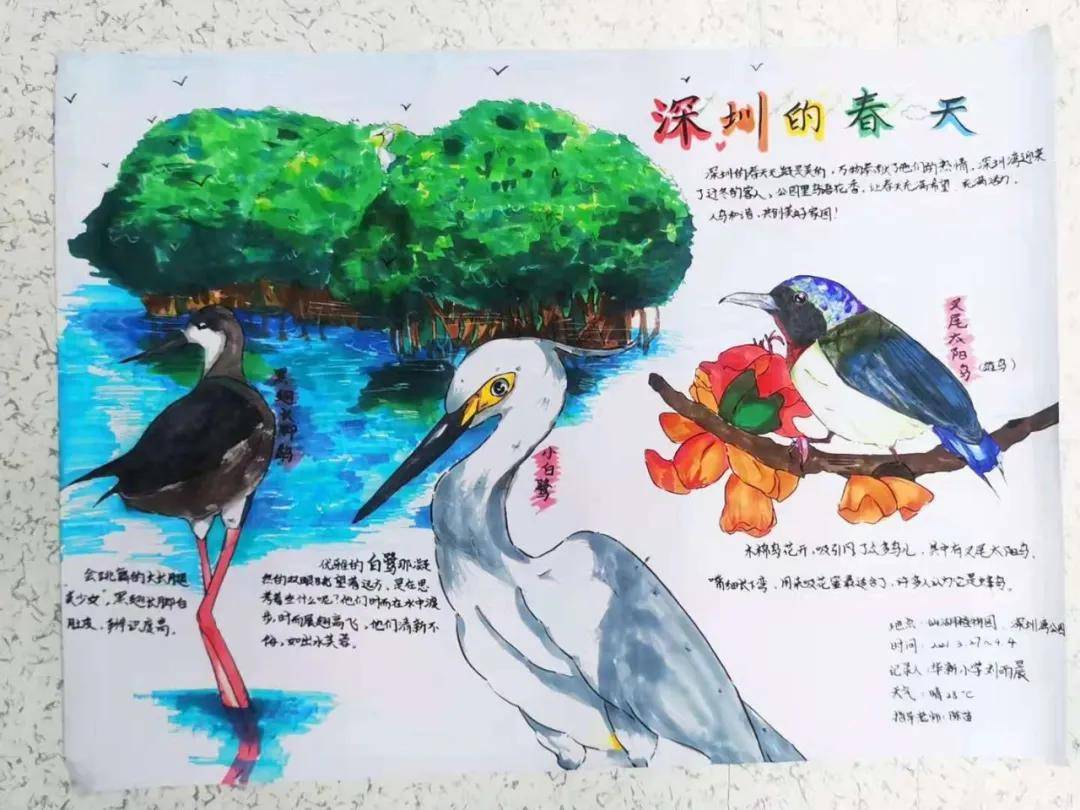 深圳的春天
深圳的春天无疑是美的，万物奉献了他们的热情，深圳湾迎来
了过冬的客人，公园里鸟语花香，让春天充满希望，充满活力，
人鸟和谐，共创美好家园！
叉尾太阳鸟
（雄鸟）
黑翅长脚鹬
小白鹭
木棉花开，吸引了众多鸟儿，其中有叉尾太阳鸟。
嘴细长下弯，用来吸花蜜最适合了，许多人认为它是蜂鸟。
会跳舞的大长腿
美少女"，黑翅长脚白
肚皮，辨识度高。
优雅的白鹭那凝
热的双眼眺望着远方，是在思
考着些什么呢？他们时而在水中漫
步，时而展翅高飞，他们清新不
俗，如出水芙蓉。
地点：仙湖植物园、深圳湾公园
时间：2021.3.27～4.4
记录人：华新小学刘雨晨
天气：晴 28℃
指导老师：陈苗